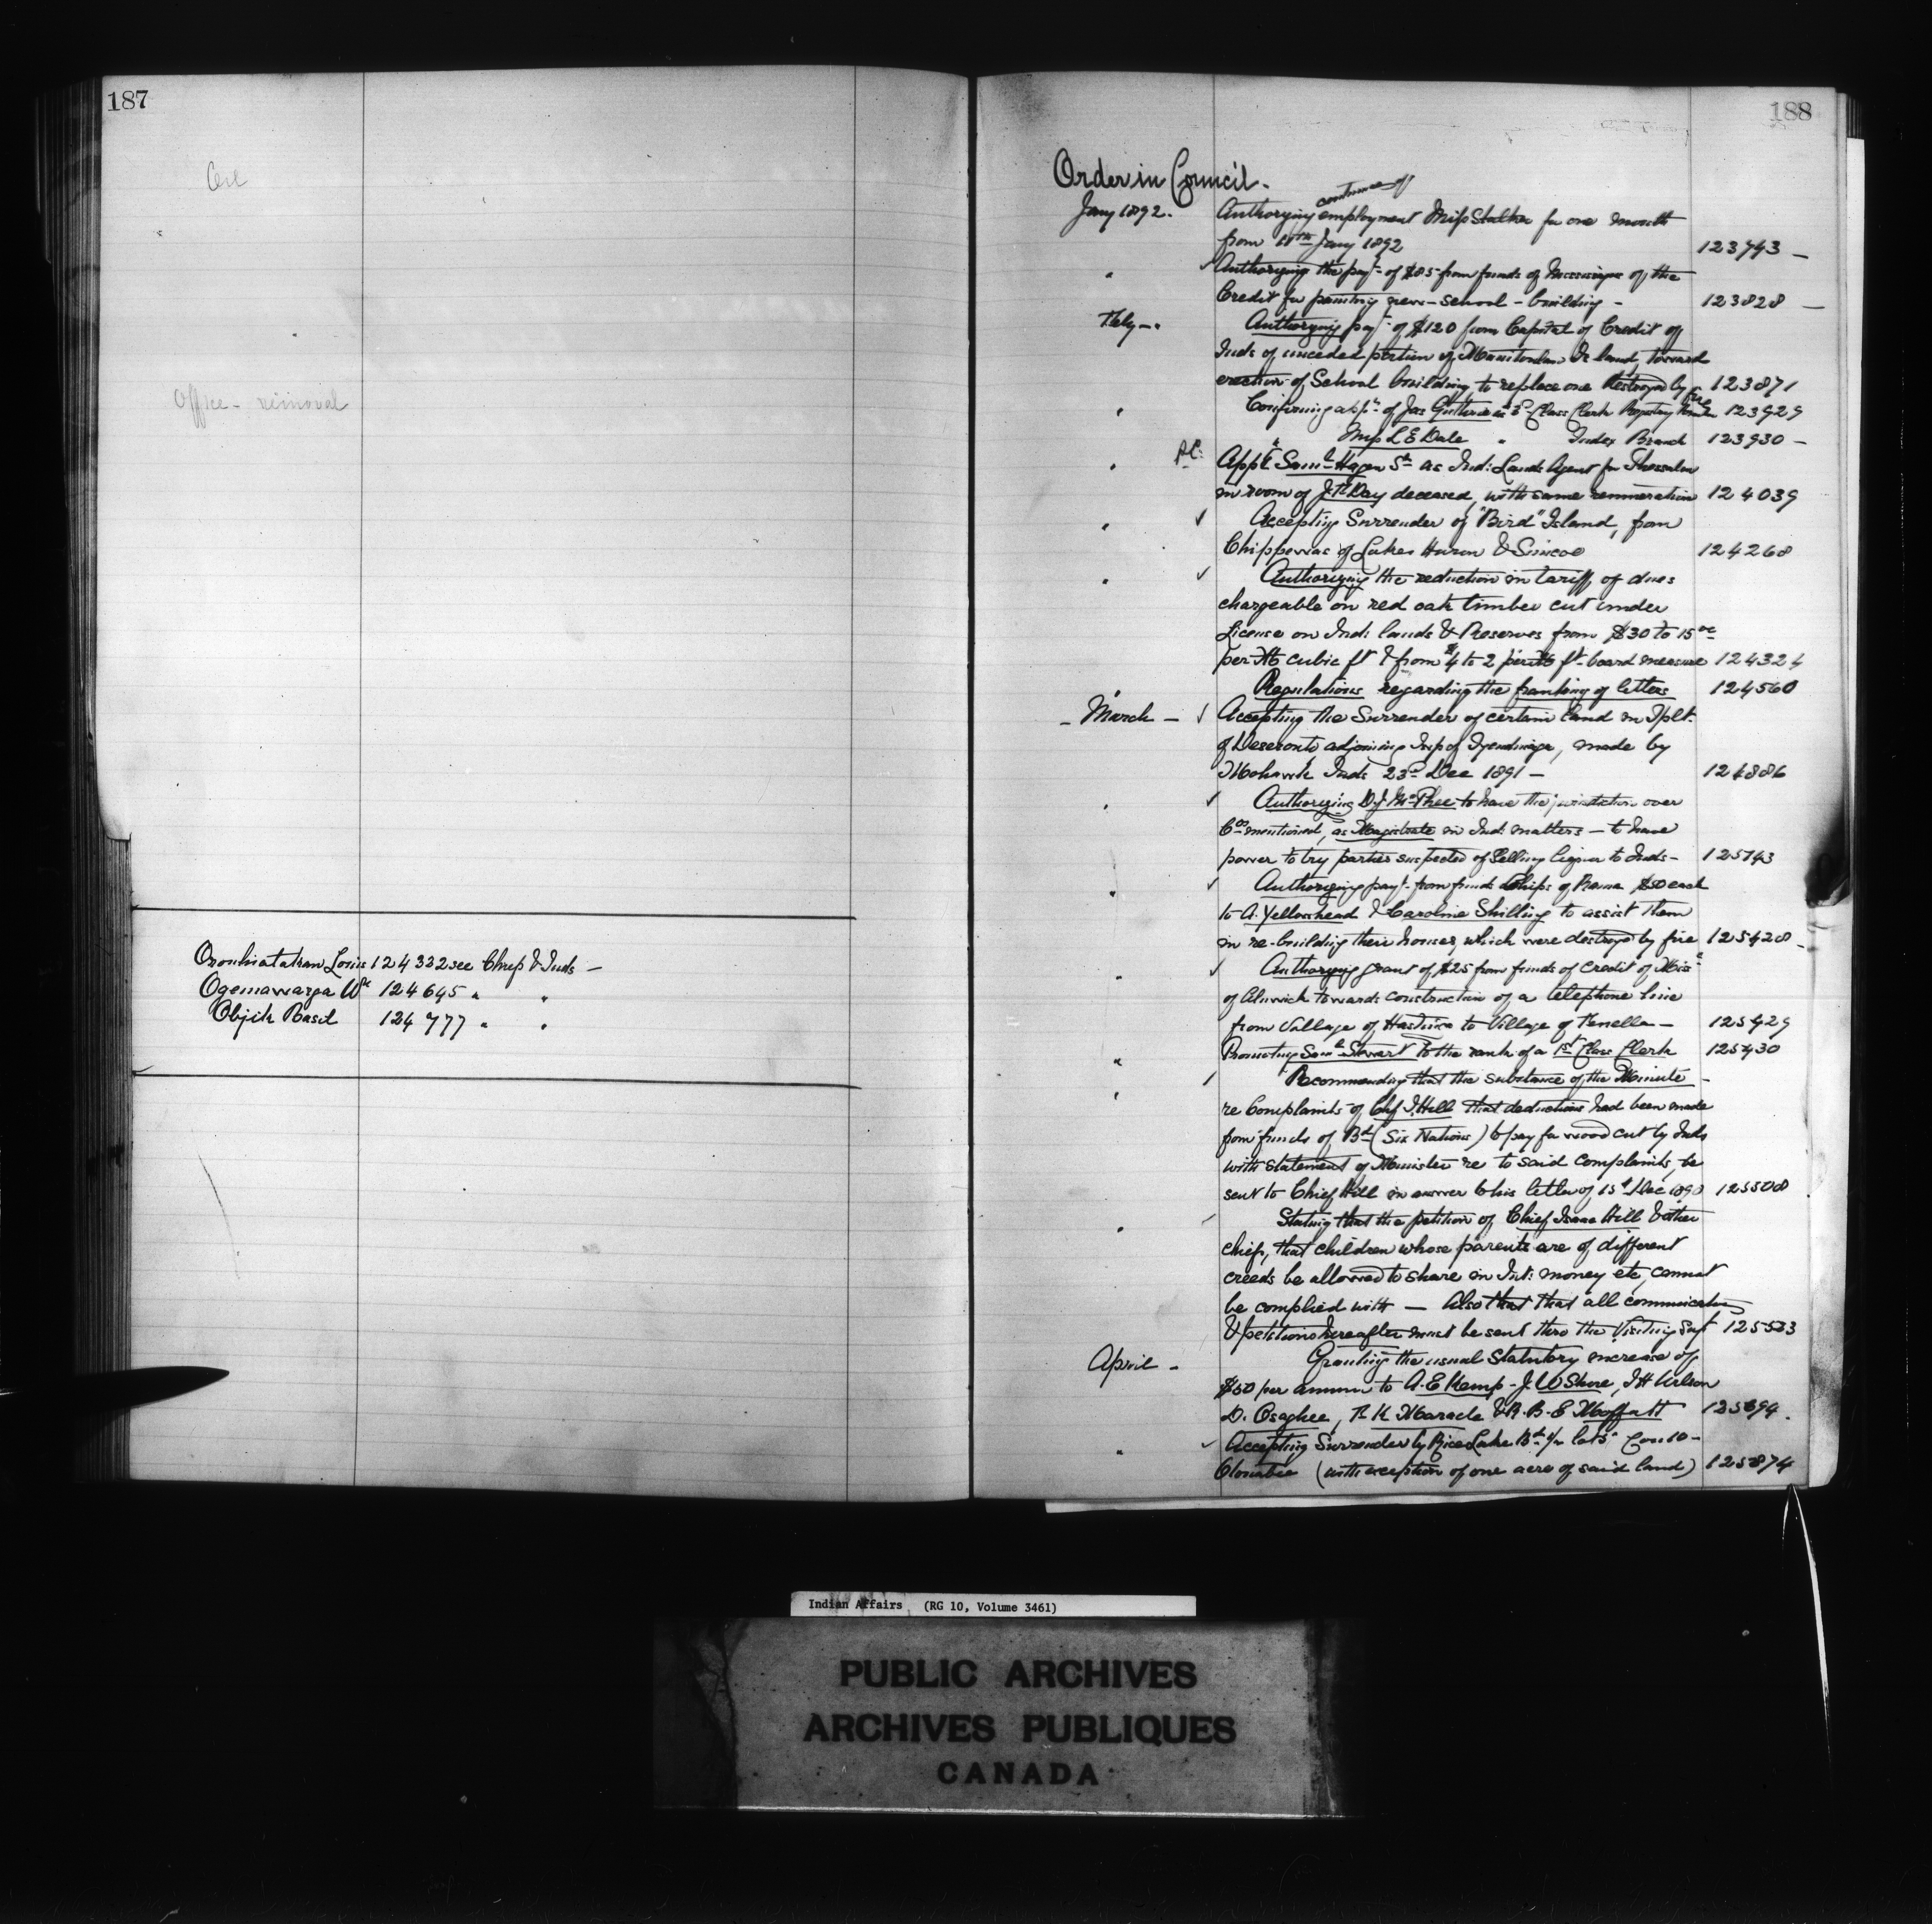 187
Oil
Office - removal
Oronhiatakan Louis 124332 see Chiefs & Inds -
Ogemawarga Wm 124645 " "
Objik Basil 124777 " "
188
Order in Council.
continuance of
Jany 1892. Authorizing employment Miss Stalker for one month
from 11th Jany 1892 123743 -
" Authorizing the payt of $85 from funds of Mississagas of the
Credit for painting new - school - building - 123828 -
Feby - " Authorizing payt of $120 from Capital of Credit of
Inds of unceded portion of Manitoulin Island, toward
erection of School building to replace one destroyed by fire 123871
" Confirming appt of Jas Guthrie as 3rd Class Clerk Registry Branch 123929
" Miss L E Dale " Index Branch 123930 -
" P.C. Appt Saml Hagan Sr as Ind: Lands Agent for Thessalon
in room of J. R Day deceased, with same remuneration 124039
" ✓ Accepting Surrender of "Bird" Island, from
Chippewas of Lakes Huron & Simcoe 124268
" ✓ Authorizing the reduction in tariff of dues
chargeable on red oak timber cut under
License on Ind: lands & Reserves from $30 to 15 00
per M cubic ft & from $4 to 2 per M ft board measure 124324
" Regulations regarding the franking of letters 124560
- March - ✓ Accepting the Surrender of certain land in Tplt.
of Deseronto adjoining Twp of Tyendinaga, made by
Mohawk Inds 23rd Dec 1891 - 124886
" ✓ Authorizing D. J. McPhee to have the jurisdiction over
Cos mentioned, as Magistrate in Ind: matters - to have
power to try parties suspected of Selling liquor to Inds - 125143
" ✓ Authorizing payt from funds Chips of Rama $50 each
to A. Yellowhead & Caroline Shilling to assist them
in re-building their houses, which were destroyed by fire 125428 -
" ✓ Authorizing grant of $25 from funds of credit of Miss
of Alnwick towards construction of a telephone line
from Village of Hastings to Village of Kenella - 125429
" Promoting Saml Stewart to the rank of a 1st Class Clerk 125430
" ✓ Recommending that the substance of the Minute -
re Complaints of Chf J. Hill that deductions had been made
from funds of Bd (Six Nations) to pay for wood cut by Inds
with statement of Minister re to said complaints, be
sent to Chief Hill in answer to his letter of 15t Dec 1890 125508
" ✓ Stating that the petition of Chief Isaac Hill & other
chiefs, that children whose parents are of different
creeds be allowed to share in Int: money etc, cannot
be complied with - Also that that all communications
& petitions hereafter must be sent thro the Visiting Supt 125533
April - Granting the usual Statutory increase of
$50 per annum to A. E Kemp - J. W Shore, J. H Wilson
D. Osaghee, R K Maracle & R. B. E Moffatt 125694.
" ✓ Accepting Surrender by Rice Lake Bd of lot 5 Con 10 -
Otonabee (with exception of one acre of said land) 125874
Indian Affairs (RG 10, Volume 3461)
PUBLIC ARCHIVES
ARCHIVES PUBLIQUES
CANADA